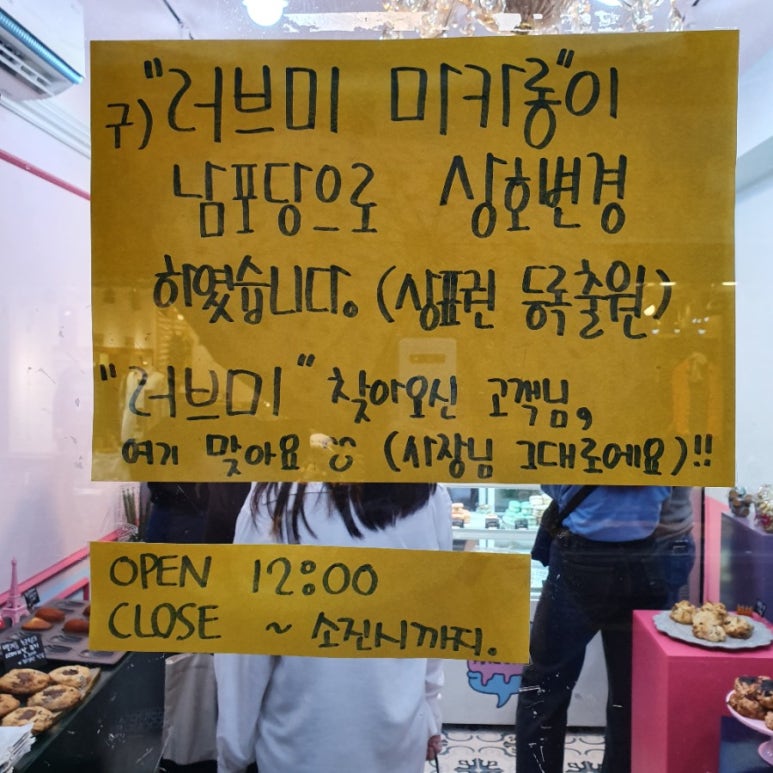 구) "러브미 마카롱"이
남포당으로 상호변경
하였습니다. (상표권 등록출원)
"러브미" 찾아오신 고객님,
여기 맞아요 (사장님 그대로에요)!!
OPEN 12:00
CLOSE ~ 소진시까지.